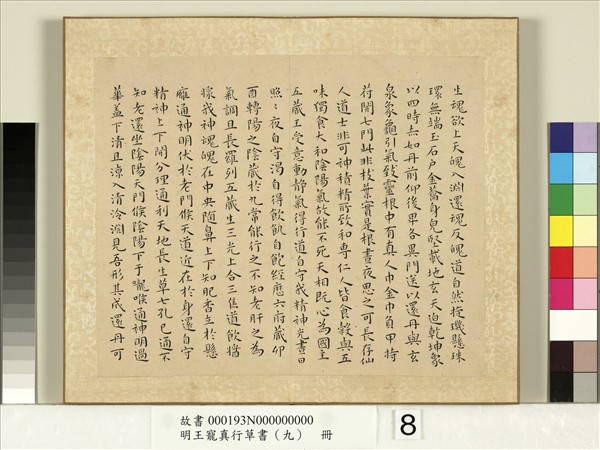 生魂欲上天魄入淵還魂反魄道自然旋璣懸珠
環無端玉石戶金籥身兒堅載地玄天迫乾坤象
以四時赤如丹前仰後卑各異門送以還丹與玄
泉象龜引氣致靈根中有真人巾金巾負甲持
符開七門此非枝葉實是根晝夜思之可長存仙
人道士非可神積精所致和專仁人皆食穀與五
味獨食大和陰陽氣故能不死天相既心為國主
五藏王受意動靜氣得行道自守我精神光晝日
照〻夜自守渴自得飲飢自飽經歷六府藏卯
酉轉陽之陰藏於九常能行之不知老肝之為
氣調且長羅列五藏生三光上合三焦道飲醬
漿我神魂魄在中央隨鼻上下知肥香立於懸
癰通神明伏於老門候天道近在於身還自守
精神上下開分理通利天地長生草七孔已通不
知老還坐陰陽天門候陰陽下于嚨喉通神明過
華蓋下清且涼入清泠淵見吾形其成還丹可
故書 000193N000000000
明王寵真行草書（九） 冊
8